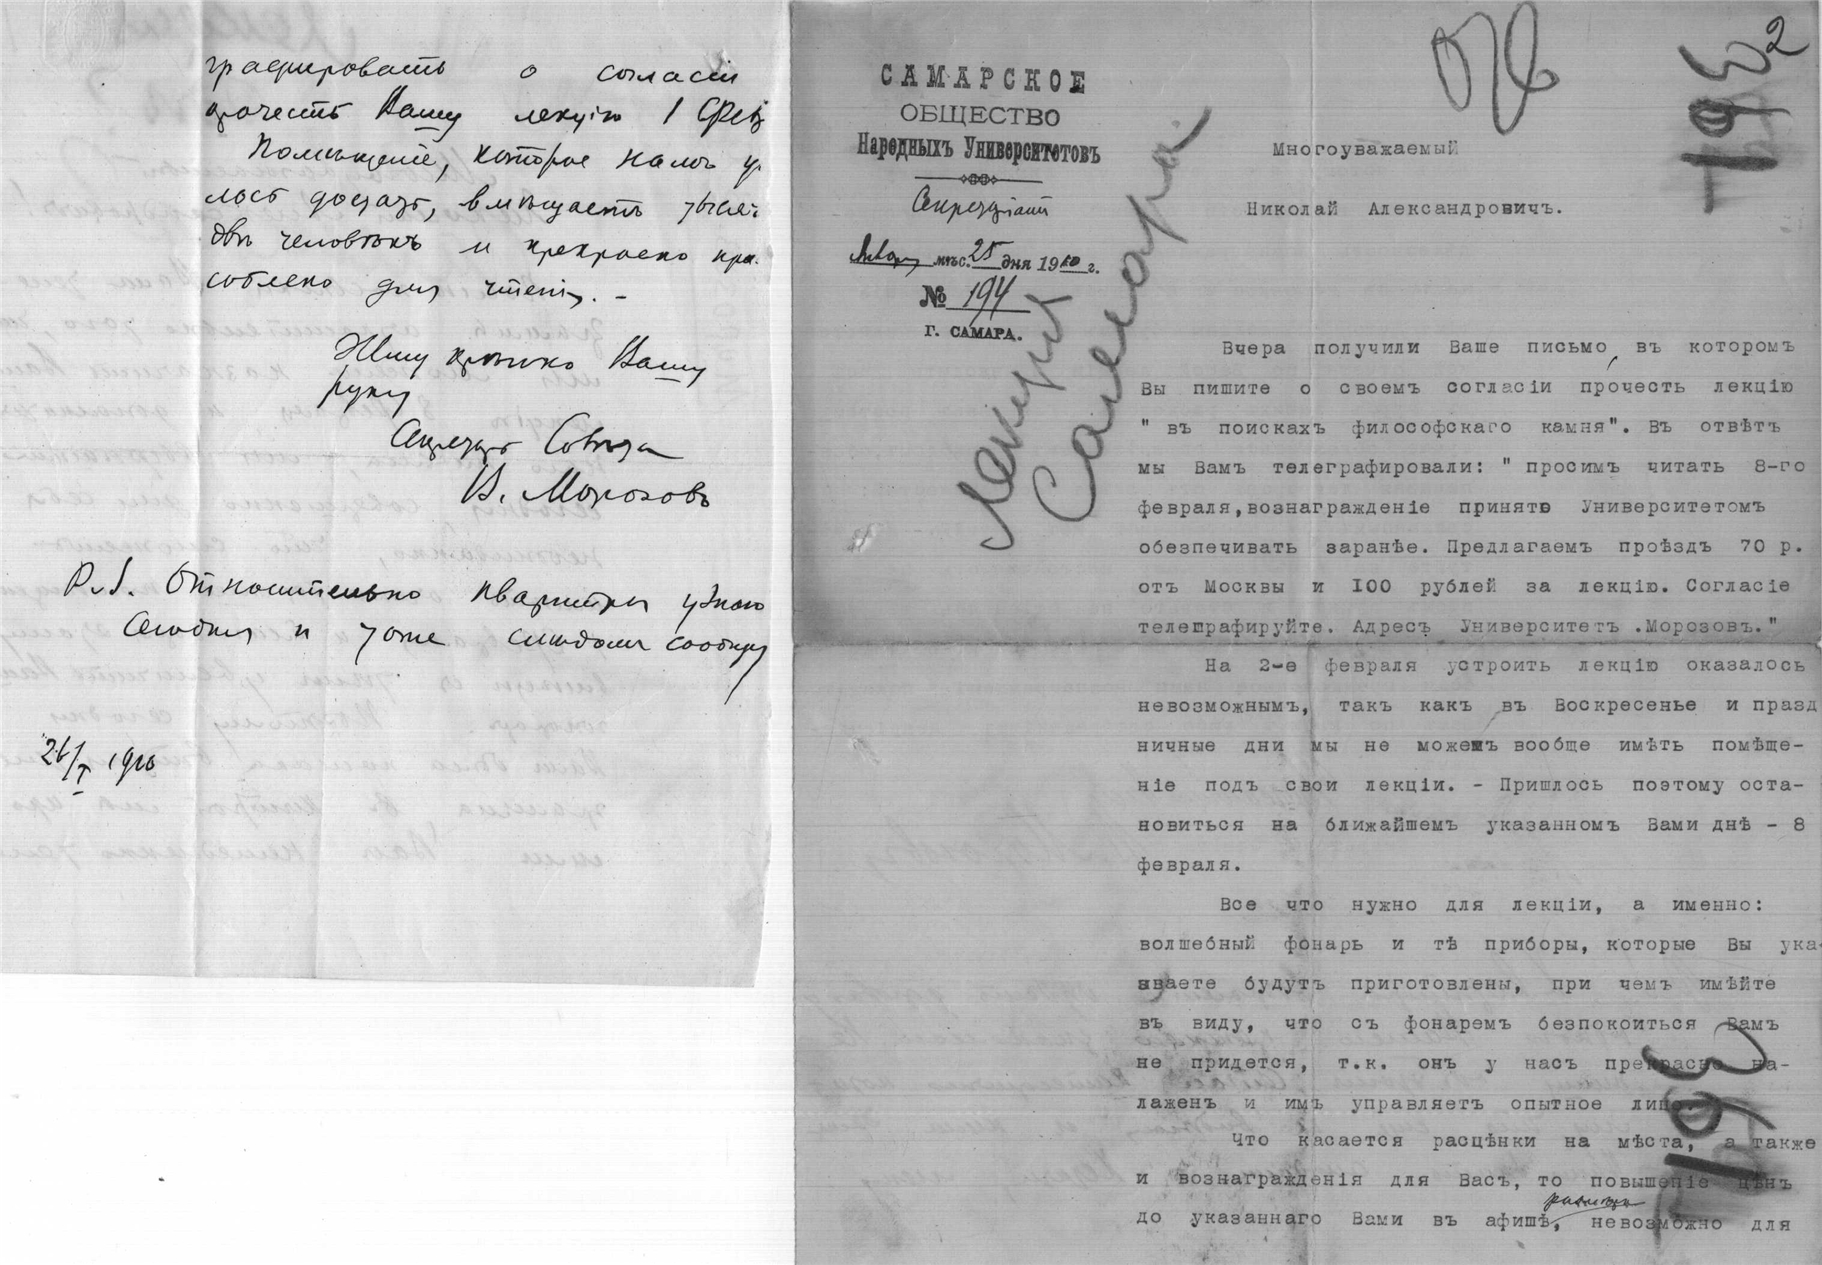 графировать о согласіи
прочесть Вашу лекцію 1 Фев
Помѣщеніе, которое намъ у
лось достать, вмѣщаетъ тысяч
двѣ человѣкъ и прекрасно при
соблено для чтенія. -
Жму крѣпко Вашу
руку
Секретарь Совѣта
В. Морозовъ
P.S. Относительно квартиры узнаю
сегодня и тоже слѣдомъ сообщу
26/I 1910
САМАРСКОЕ
ОБЩЕСТВО
Народныхъ Университетовъ
Январь мѣс. 25 дня 1910 г.
№ 194
Г. САМАРА.
Лекція
Самара.
2
193
Многоуважаемый
Николай Александровичъ.
Вчера получили Ваше письмо, въ которомъ
Вы пишите о своемъ согласіи прочесть лекцію
" въ поискахъ философскаго камня". Въ отвѣтъ
мы Вамъ телеграфировали: " просимъ читать 8-го
февраля, вознагражденіе принято Университетомъ
обезпечивать заранѣе. Предлагаемъ проѣздъ 70 р.
отъ Москвы и 100 рублей за лекцію. Согласіе
телеграфируйте. Адресъ Университетъ .Морозовъ."
На 2-е февраля устроить лекцію оказалось
невозможнымъ, такъ какъ въ Воскресенье и празд
ничные дни мы не можемъ вообще имѣть помѣще-
ніе подъ свои лекціи. - Пришлось поэтому оста-
новиться на ближайшемъ указанномъ Вами днѣ - 8
февраля.
Все что нужно для лекціи, а именно:
волшебный фонарь и тѣ приборы, которые Вы ука-
зываете будутъ приготовлены, при чемъ имѣйте
въ виду, что съ фонаремъ безпокоиться Вамъ
не придется, т.к. онъ у насъ прекрасно на-
лаженъ и имъ управляетъ опытное лицо.
Что касается расцѣнки на мѣста, а также
и вознагражденія для Васъ, то повышеніе цѣнъ
до указаннаго Вами въ афишѣ, невозможно для
193